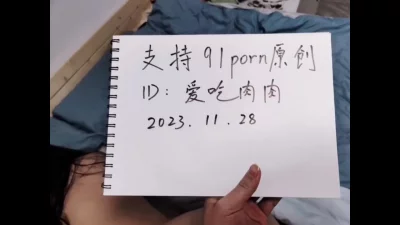 支持91porn原創
ID：爱吃肉肉
2023.11.28